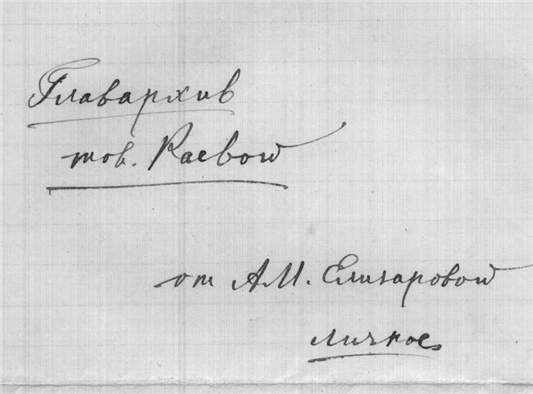 Главархив
тов. Раевой
от А.И. Елизаровой
личное